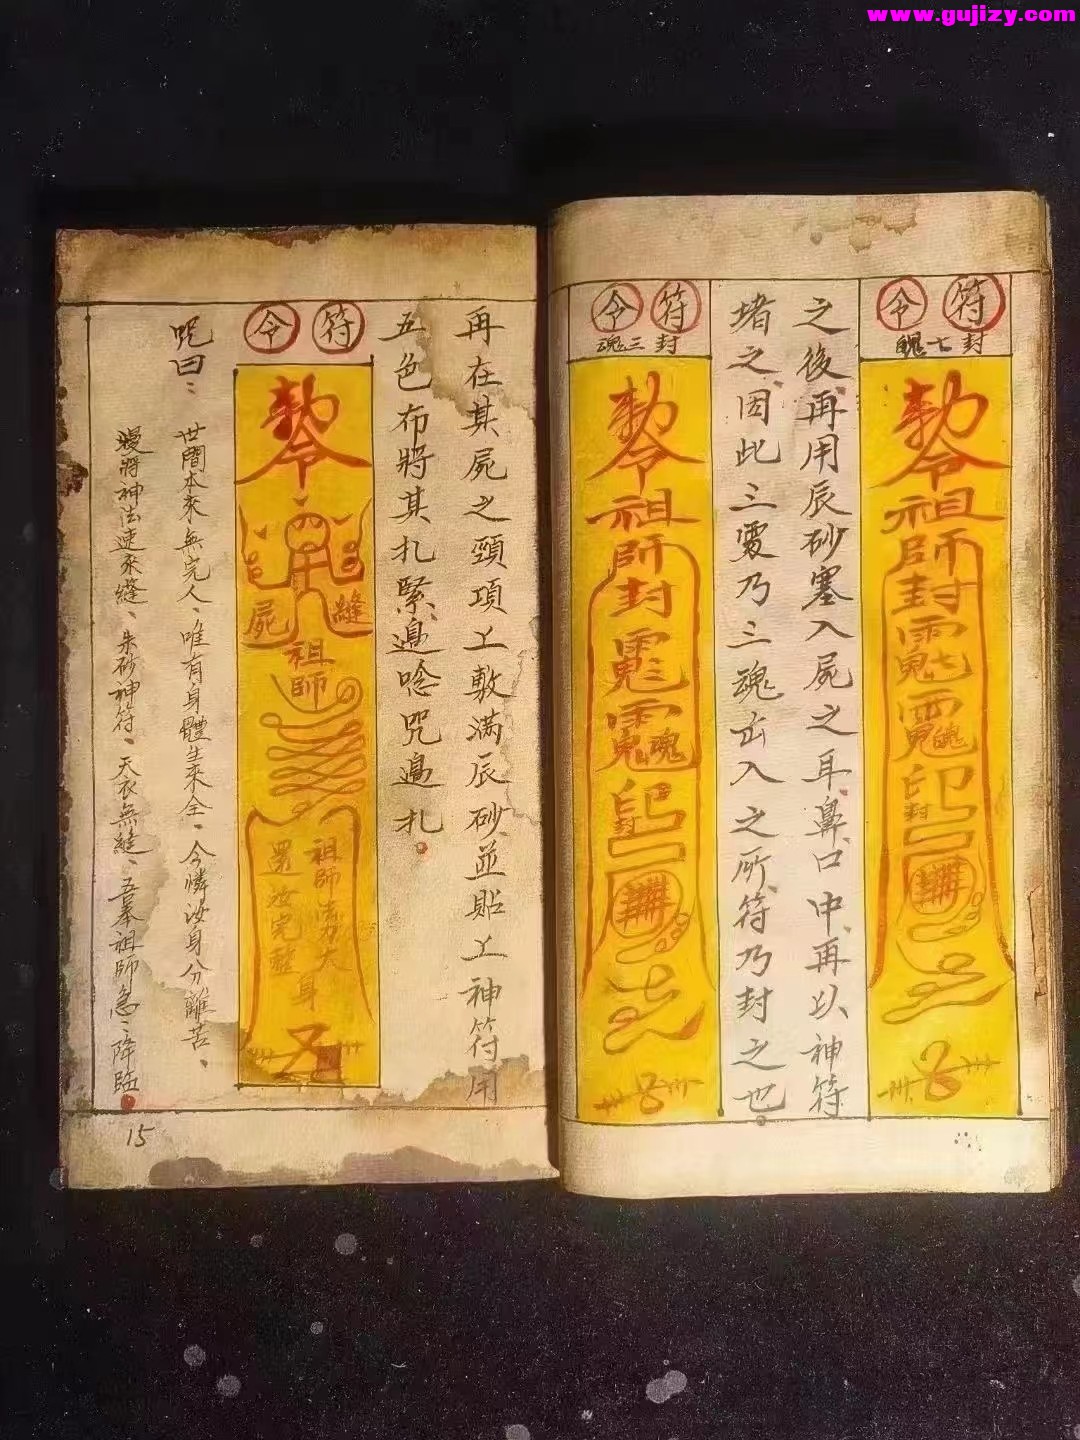 www.gujizy.com
符令
封七魄
勅令祖師封
印封
之後再用辰砂塞入屍之耳、鼻、口中、再以神符
堵之、因此三竅乃三魂出入之所、符乃封之也。
符令
封三魂
勅令祖師封
魂
印封
再在其屍之頸項上敷滿辰砂、並貼上神符用
五色布將其扎緊、邊唸咒邊扎。
符令
勅令
縫屍
祖師
祖師
還汝完整身
咒曰：
世間本來無完人、唯有身體生來全、今憐汝身分離苦、
將神法速來縫、朱砂神符、天衣無縫、吾奉祖師急：降臨。
15